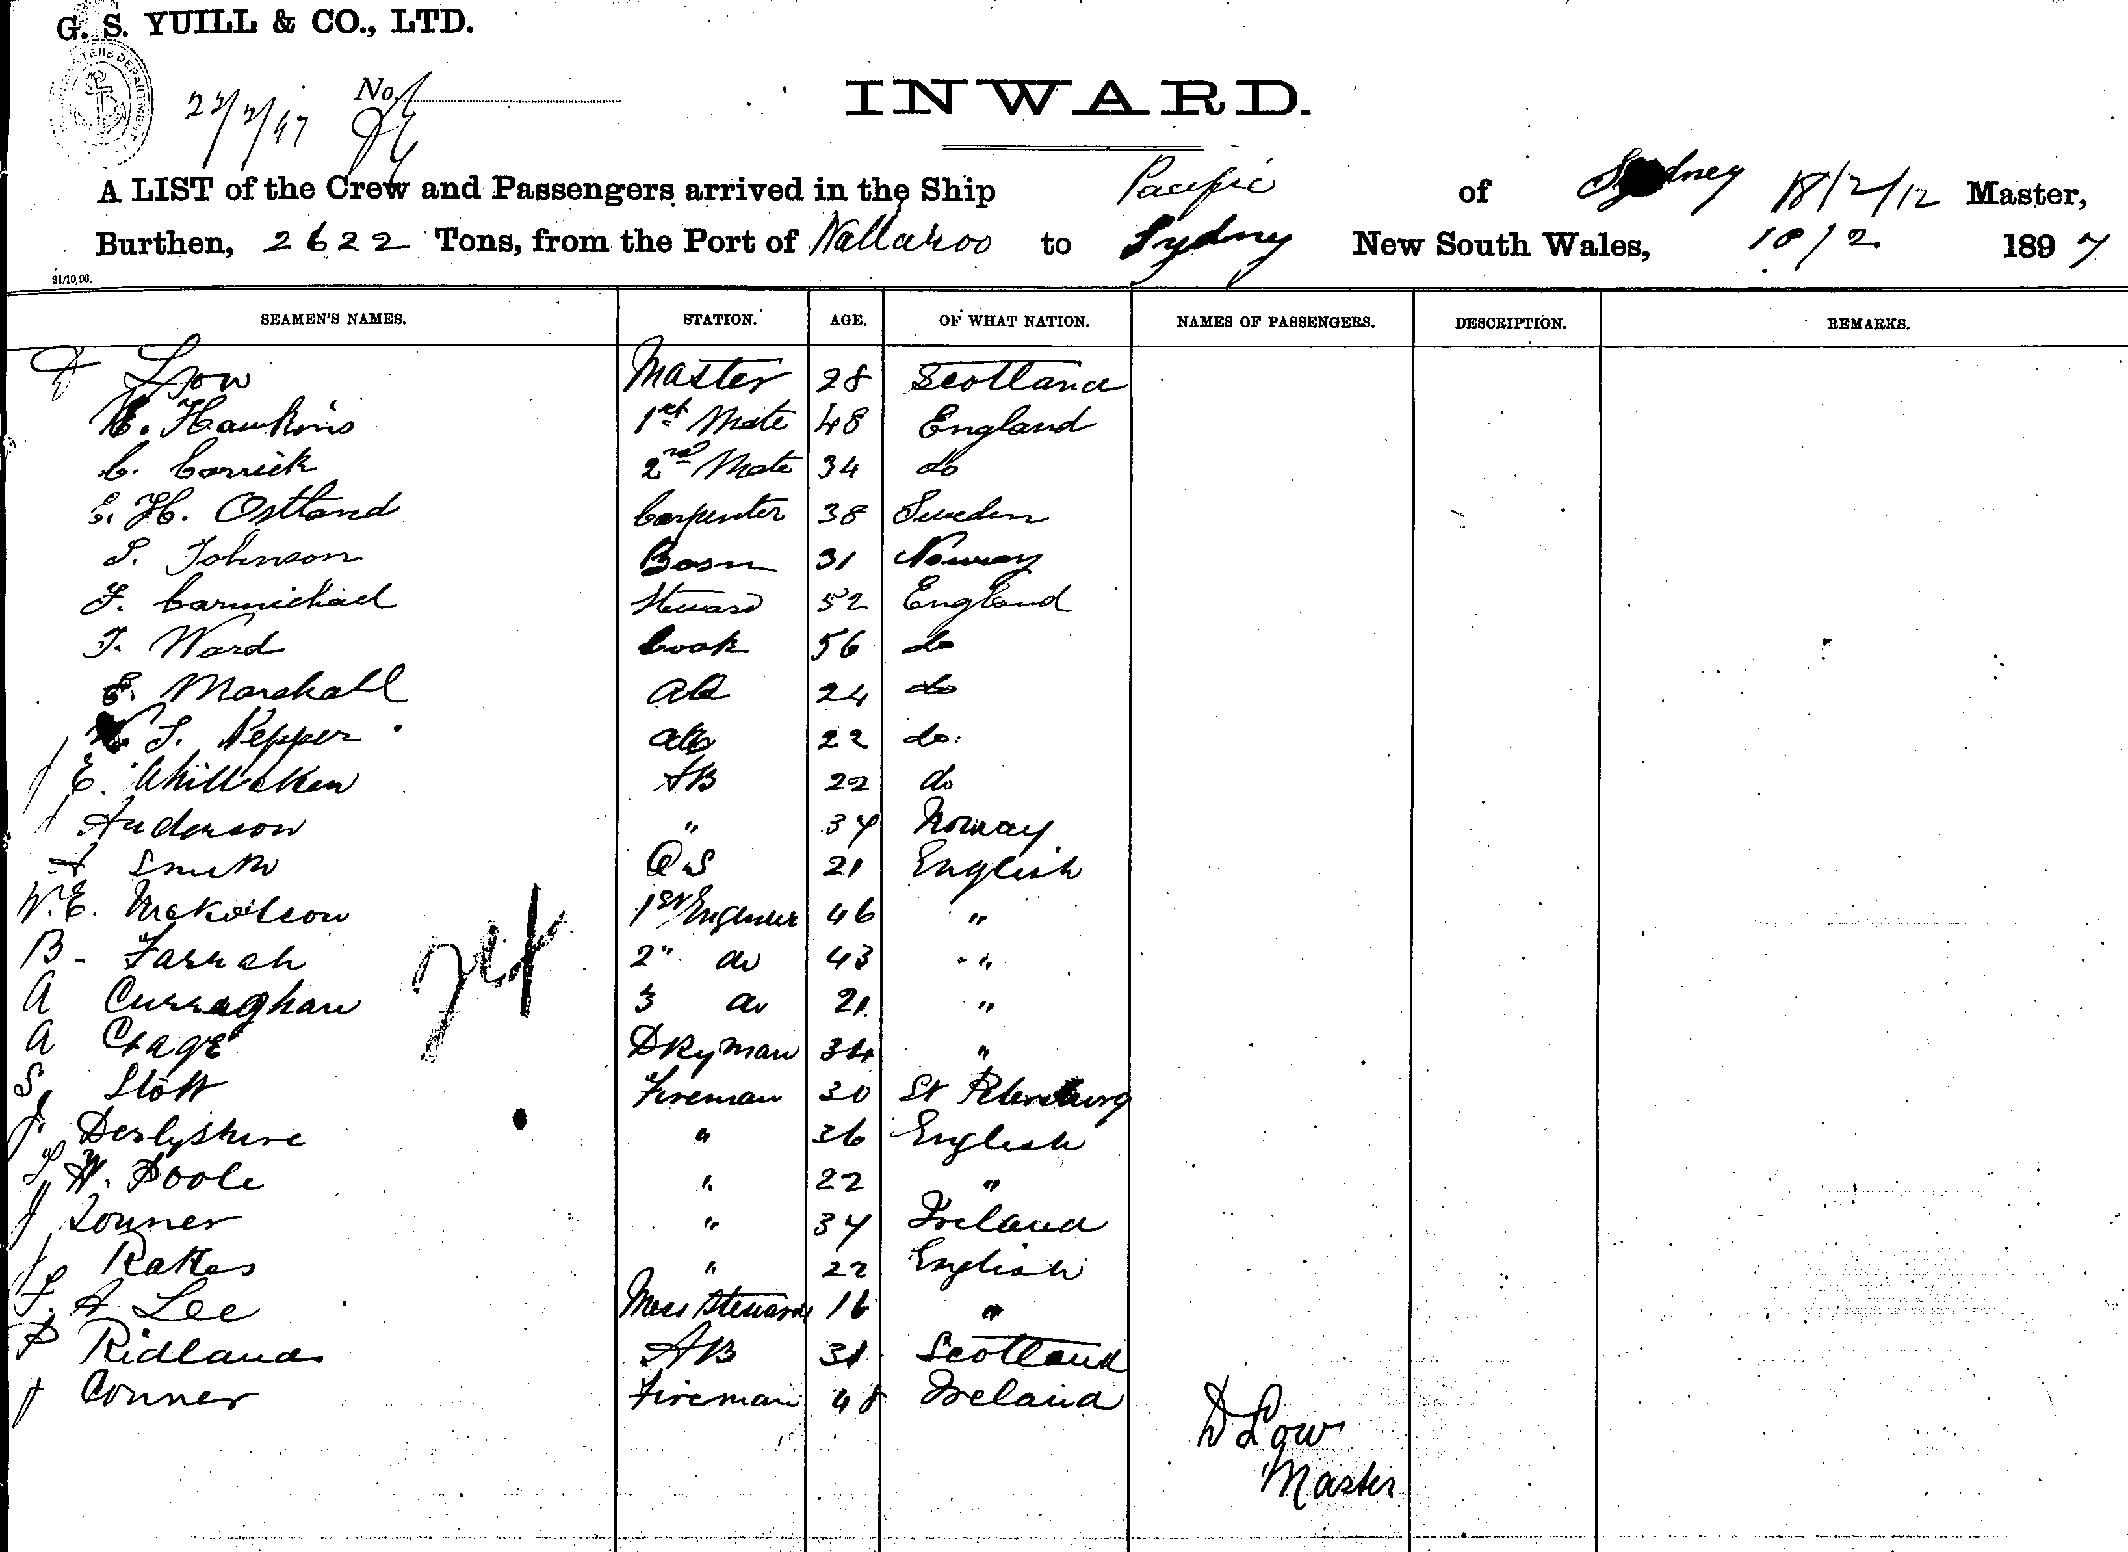 G. S. YUILL & CO., LTD.
22/2/97 No.
INWARD.
A LIST of the Crew and Passengers arrived in the Ship Pacific of Sydney 18/2/12 Master,
Burthen, 2622 Tons, from the Port of Wallaroo to Sydney New South Wales, 18/2 1897
21/10,96.
SEAMEN'S NAMES. STATION. AGE. OF WHAT NATION. NAMES OF PASSENGERS. DESCRIPTION. REMARKS.
D Low Master 28 Scotland
Hawkins 1st Mate 48 England
C. Carrick 2nd Mate 34 do
H. Ostland Carpenter 38 Sweden
S. Johnson Bosn 31 Norway
F. Carmichael Steward 52 England
T. Ward Cook 56 do
E. Marshall AB 24 do
S. Pepper AB 22 do.
E. Whittaker AB 22 do
J Anderson " 34 Norway
A Smith OS 21 English
W. E. 1st Engineer 46 "
B - Farrah 2" do 43 "
A Curraghan 3 do 21 "
A Gage Dkyman 34 "
S. Stott Fireman 30 St Petersburg
J. Derbyshire " 36 English
W. Poole " 22 "
J Tonner " 34 Ireland
J Rattes " 22 English
F. A Lee Mess Steward 16 "
P Ridland AB 31 Scotland
J Conner Fireman 48 Ireland
D Low
Master